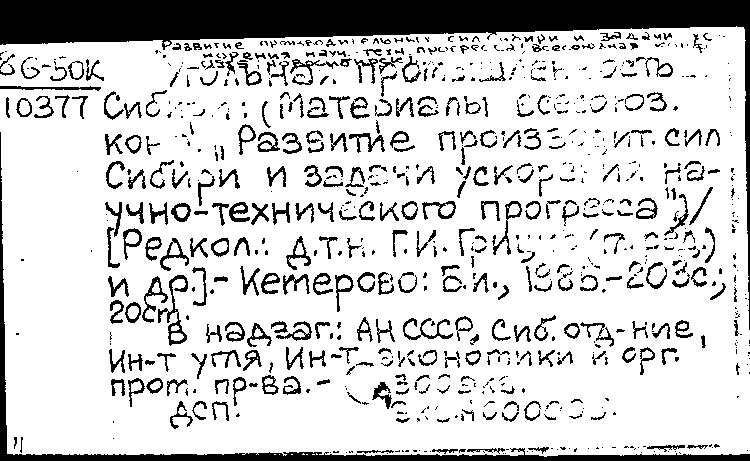 Развитие производительных сил Сибири и задачи ус-
корения науч.-техн. прогресса: Всесоюзная конф.
1985 Новосибирск
86-50К Угольная промышленность
10377 Сибири: (Материалы всесоюз.
конф. "Развитие производит. сил
Сибири и задачи ускорения на-
учно-технического прогресса")/
[Редкол.: д.т.н. Г.И. Грицко (гл. ред.)
и др.].- Кемерово: Б.и., 1985.-203с.;
20см.
В надзаг.: АН СССР, Сиб. отд-ние,
Ин-т угля, Ин-т экономики и орг.
пром. пр-ва.- 300экз.
ДСП.